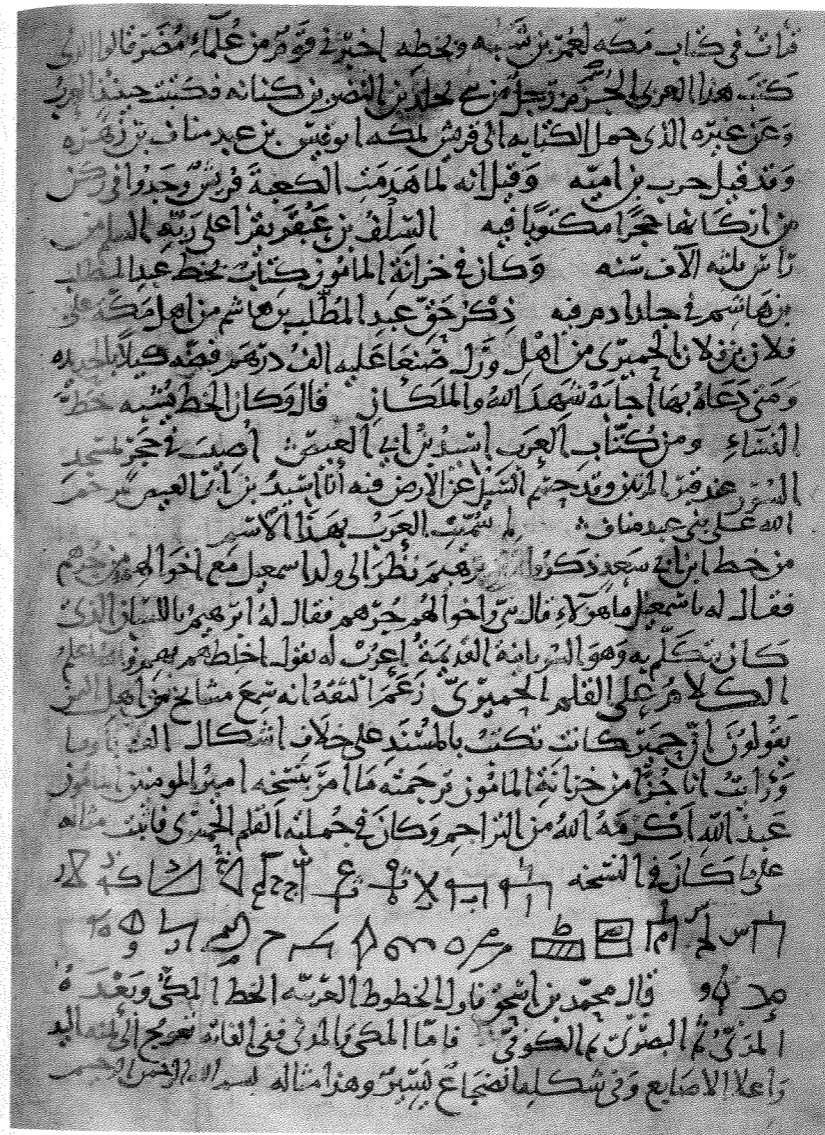 قرأت في كتاب مكه لعمر بن شبه وبخطه اخبرني قوم من علماء مضر قالوا الذي
كتب هذا العربي الجزم رجل من بني مخلد بن النضر بن كنانه فكتبت حينئذ العرب
وعن غيره الذي حمل الكتابه الى قريش بمكه ابو قيس بن عبد مناف بن زهره
وقد قيل حرب بن اميه وقيل انه لما هدمت الكعبة قريش وجدوا في ركن
من اركانها حجرا مكتوبا فيه السلف بن عبقر يقرا على ربه السلم من
راس ثلثه الاف سنه وكان في خزانة المامون كتاب بخط عبد المطلب
بن هاشم في جلد ادم فيه ذكر حق عبد المطلب بن هاشم من اهل مكة على
فلان بن فلان الحميري من اهل وزل صنعا عليه الف درهم فضه كيلا بالحديده
ومتى دعاه بها اجابه شهد الله والملكان قال وكان الخط يشبه خط
النساء ومن كتاب العرب اسيد بن ابي العيص اصيب في حجر بمسجد
السرر عند قبر المريين وقد حسر السيل عن الارض فيه أنا اسيد بن ابي العيص ترحم
الله على بني عبد مناف لم سميت العرب بهذا الاسم
من خط ابن ابي سعد ذكروا ان ابرهيم نظر الى ولد اسمعيل مع اخوالهم من جرهم
فقال له يا اسمعيل ما هولاء قال بني واخوالهم جرهم فقال له ابرهيم باللسان الذي
كان يتكلم به وهو السريانية القديمة اعرب له يقول اخلطهم بهم والله اعلم
الكلام على القلم الحميري زعم الثقة انه سمع مشايخ من اهل اليمن
يقولون ان حمير كانت تكتب بالمسند على خلاف اشكال الف وبا وتا
ورايت انا جزا من خزانة المامون ترجمته ما امر بنسخه امير المومنين المامون
عبد الله اكرمه الله من التراجم وكان في جملته القلم الحميري فاثبت مثاله
على ما كان في النسخه
قال محمد بن اسحق فاول الخطوط العربيه الخط المكي وبعده
المدني ثم البصري ثم الكوفي فاما المكي والمدني ففي الفاته تعويج الى يمنه اليد
واعلا الاصابع وفي شكله انضجاع يسير وهذا مثاله بسم الله الرحمن الرحيم